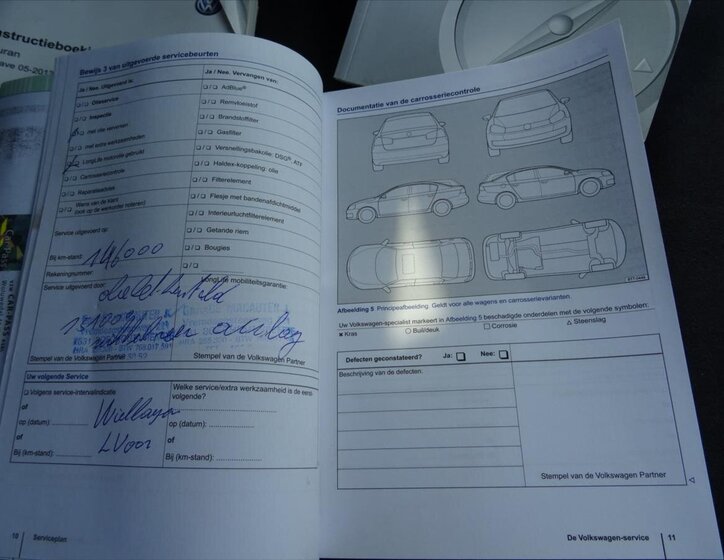 nstructieboekj
uran
ave 05-201
Bewijs 3 van uitgevoerde servicebeurten
Ja / Nee. Uitgevoerd is:
❑ / ❑ Olieservice
❑ / ❑ Inspectie
met olie verversen
❑ / ❑ met extra werkzaamheden
LongLife motorolie gebruikt
❑ / ❑ Carrosseriecontrole
❑ / ❑ Reparatieadvies
❑ / ❑ Wens van de klant
(ook op de werkorder noteren)
Service uitgevoerd op:
Bij km-stand: 146000
Rekeningnummer:
Service uitgevoerd door:
Stempel van de Volkswagen Partner
Ja / Nee. Vervangen van:
❑ / ❑ AdBlue®
❑ / ❑ Remvloeistof
❑ / ❑ Brandstoffilter
❑ / ❑ Gasfilter
❑ / ❑ Versnellingsbakolie: DSG®, ATF
❑ / ❑ Haldex-koppeling: olie
❑ / ❑ Filterelement
❑ / ❑ Flesje met bandenafdichtmiddel
❑ / ❑ Interieurluchtfilterelement
❑ / ❑ Getande riem
❑ / ❑ Bougies
❑ / ❑
LongLife mobiliteitsgarantie
Stempel van de Volkswagen Partner
Uw volgende Service
❑ Volgens service-intervalindicatie
of
op (datum):
of
Bij (km-stand):
LVoor
Welke service/extra werkzaamheid is de eerst-
volgende?
op (datum):
of
Bij (km-stand):
10 Serviceplan
Documentatie van de carrosseriecontrole
Afbeelding 5 Principeafbeelding. Geldt voor alle wagens en carrosserievarianten.
Uw Volkswagen-specialist markeert in Afbeelding 5 beschadigde onderdelen met de volgende symbolen:
× Kras ○ Buil/deuk □ Corrosie △ Steenslag
Defecten geconstateerd? Ja: ❑ Nee: ❑
Beschrijving van de defecten.
Stempel van de Volkswagen Partner
De Volkswagen-service 11